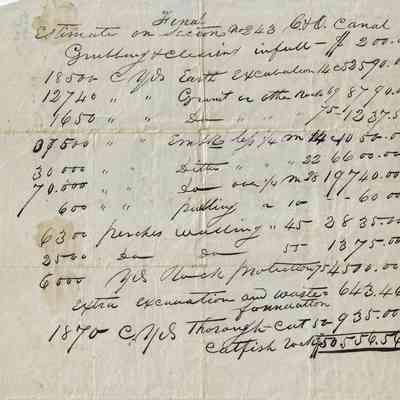 Final
Estimate on Section No 243 C&O. Canal
Grubbing & clearing in full - $ 200.0
18500 C. Yds Earth Excavation 14 c 2590.0
12740 " " or other Rock 69 8790.
1650 " " Do " 75- 1237.5
07500 " " 1/4 m 14 1050.0
30000 " " Ditto " " 22 6600.00
70.000 " " Do over 1/4 m 28 19740.00
600 " " puddling " 10 -- 60.00
6300 perches walling " 45 2835.00
2500 Do Do 55 1375.00
6000 Yds Rock protection 75 4500.00
Extra excavation and waste 643.46
foundation
1870 C. Yds Thorough-Cut 50 935.00
Catfish rock $50,556.56